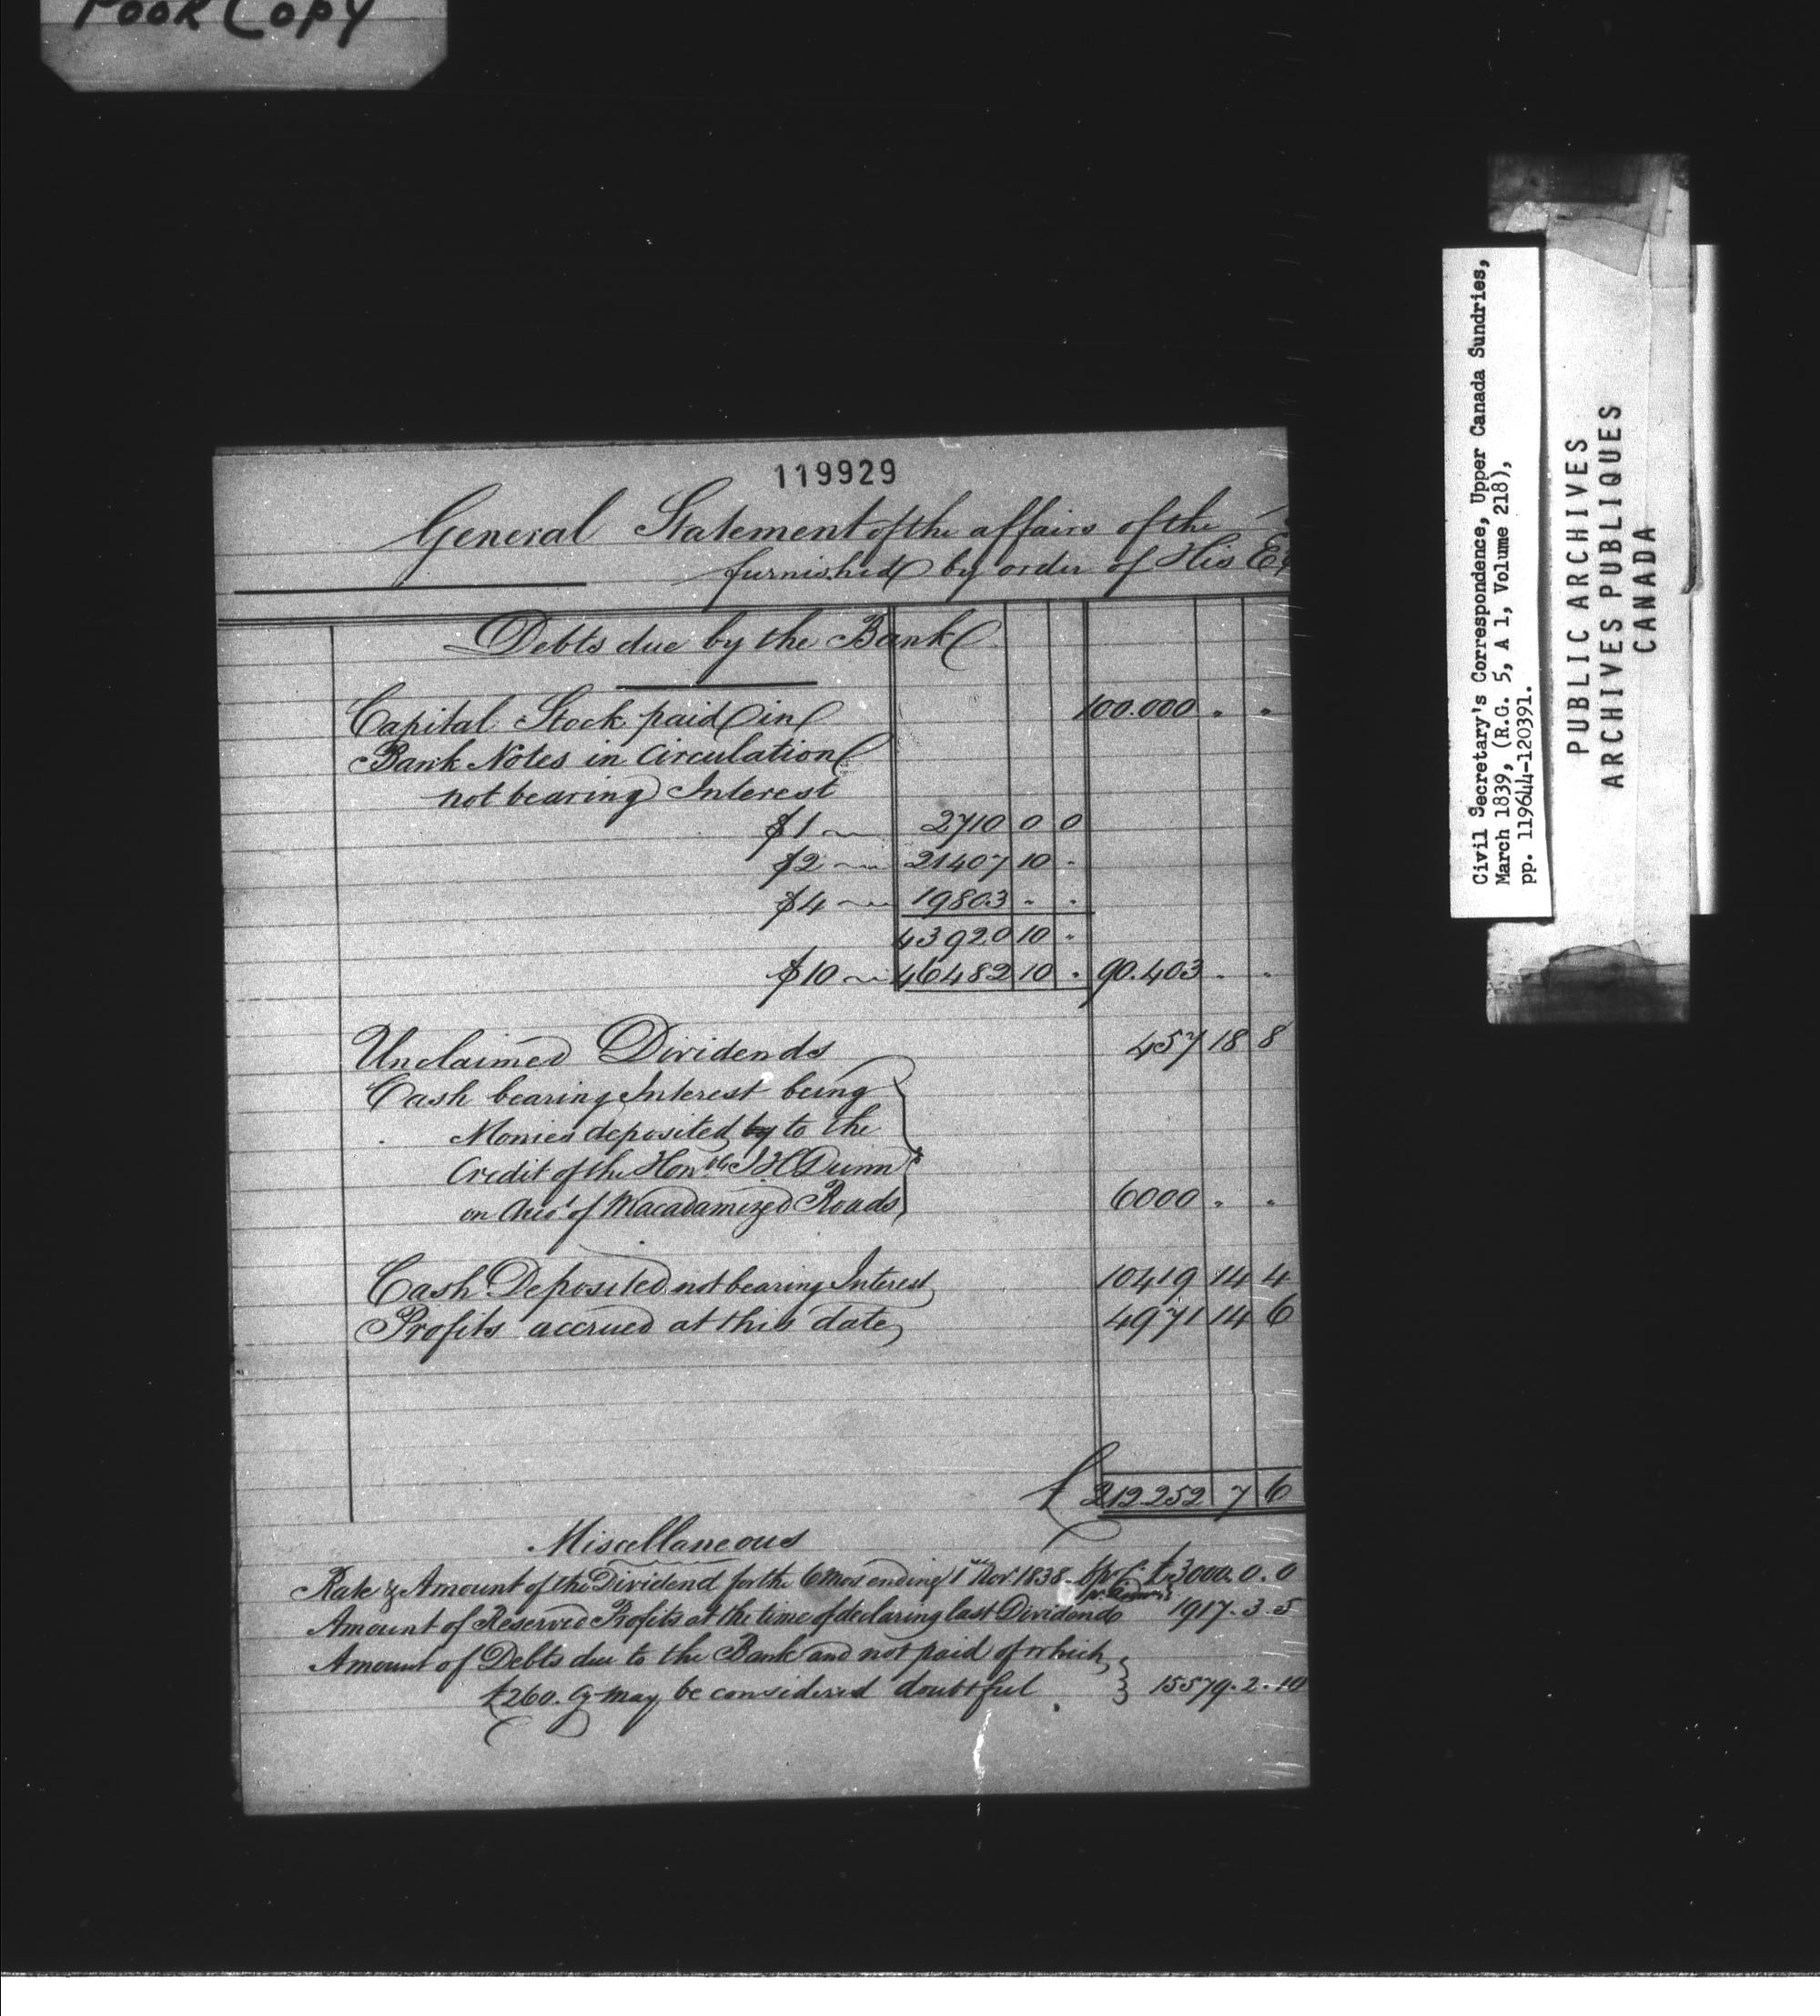 POOR COPY
119929
General Statement of the affairs of the
furnished by order of His Ex
Debts due by the Bank
Capital Stock paid in 100.000 " "
Bank Notes in Circulation
not bearing Interest
$1 2710 0 0
$2 21407 10 "
$4 19803 " "
43920 10 "
$10 46482 10 " 90.403 " "
Unclaimed Dividends 457 18 8
Cash bearing Interest being
Monies deposited by to the
Credit of the Honble J H Dunn
on Acct of Macadamized Roads 6000 " "
Cash Deposited not bearing Interest 10419 14 4
Profits accrued at this date 4971 14 6
£ 212.252 7 6
Miscellaneous
Rate & Amount of the Dividend for the 6 Mos ending 1st Nov 1838 6 pr Ct £3000.0.0
pr Annum
Amount of Reserved Profits at the time of declaring last Dividend 1917.3.5
Amount of Debts due to the Bank and not paid of which
£260. Cy may be considered doubtful 15579.2.10
Civil Secretary's Correspondence, Upper Canada Sundries,
March 1839, (R.G. 5, A 1, Volume 218),
pp. 119644-120391.
PUBLIC ARCHIVES
ARCHIVES PUBLIQUES
CANADA